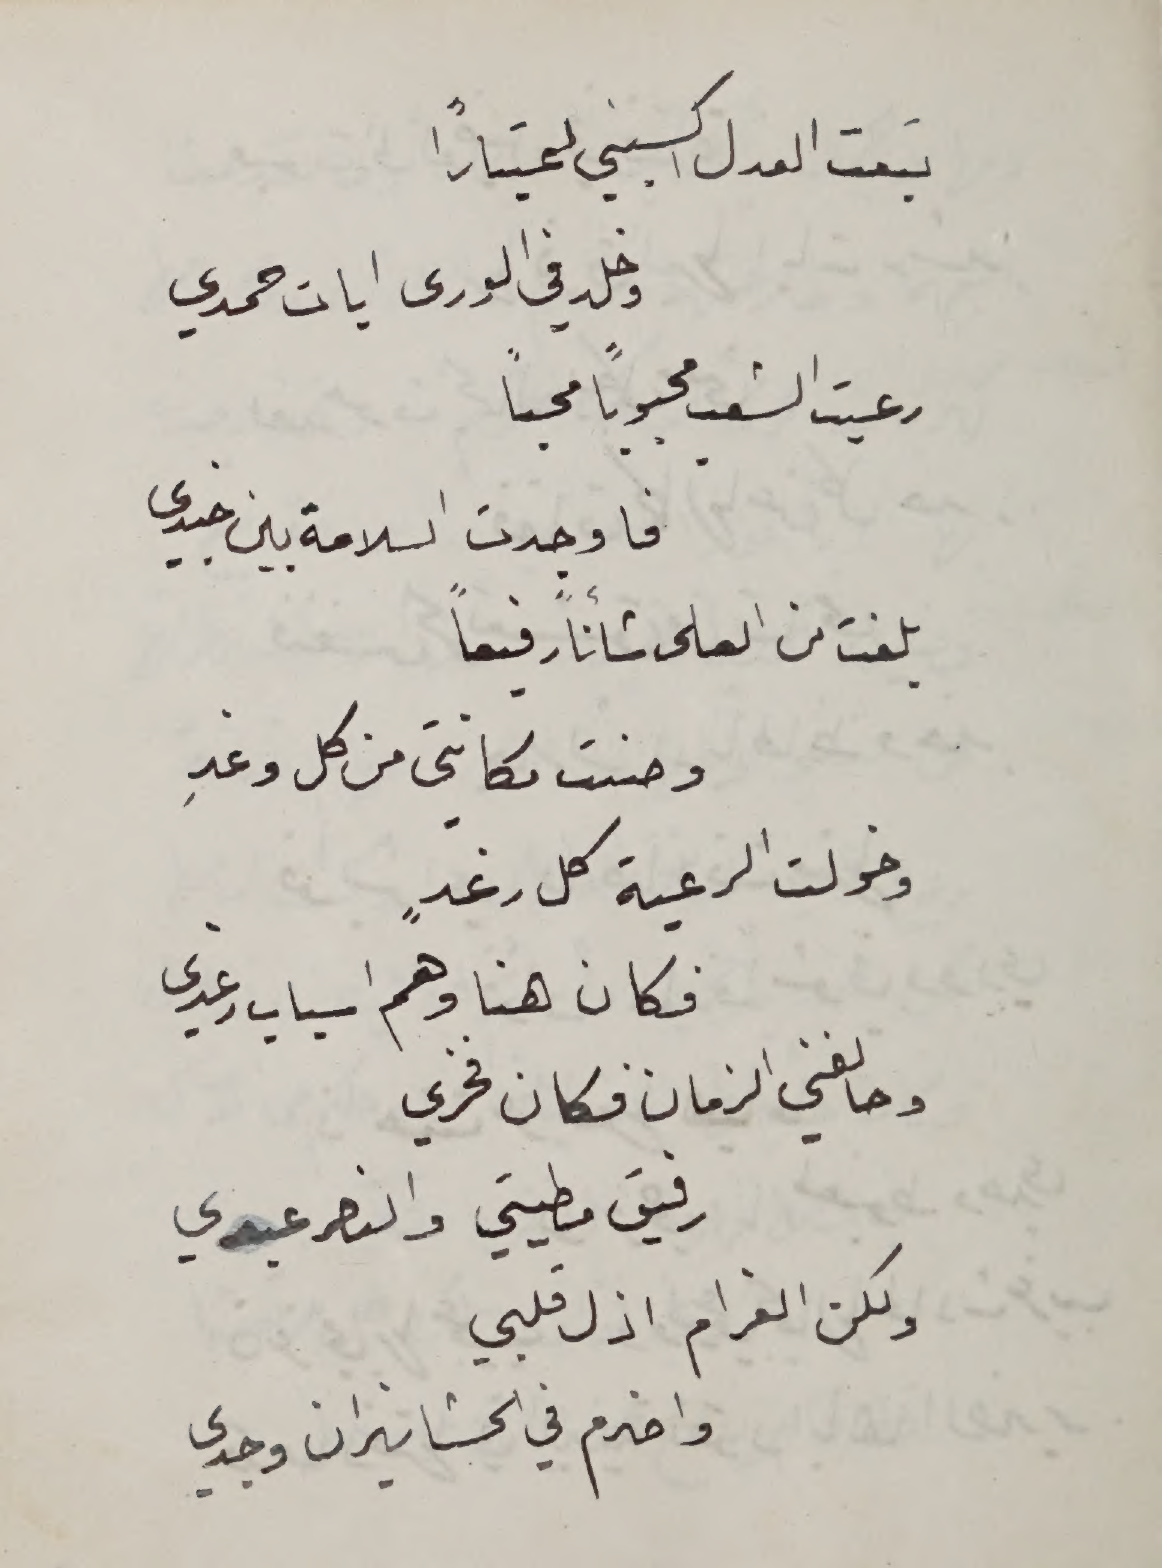 تبعت العدل اكسبني اعتبارًا
وخلد في الورى ايات حمدي
رعيت الشعب محبوبًا محباً
فاوجدت السلامة بين جندي
بلغت من العلى شأناً رفيعاً
وصنت مكانتي من كل وغدِ
وخولت الرعية كل رغدٍ
فكان هناوهم اسباب رغدي
وحالفني الزمان فكان فخري
رفيق مطيتي والنصر عبدي
ولكن الغرام اذل قلبي
واضرم في الحشا نيران وجدي